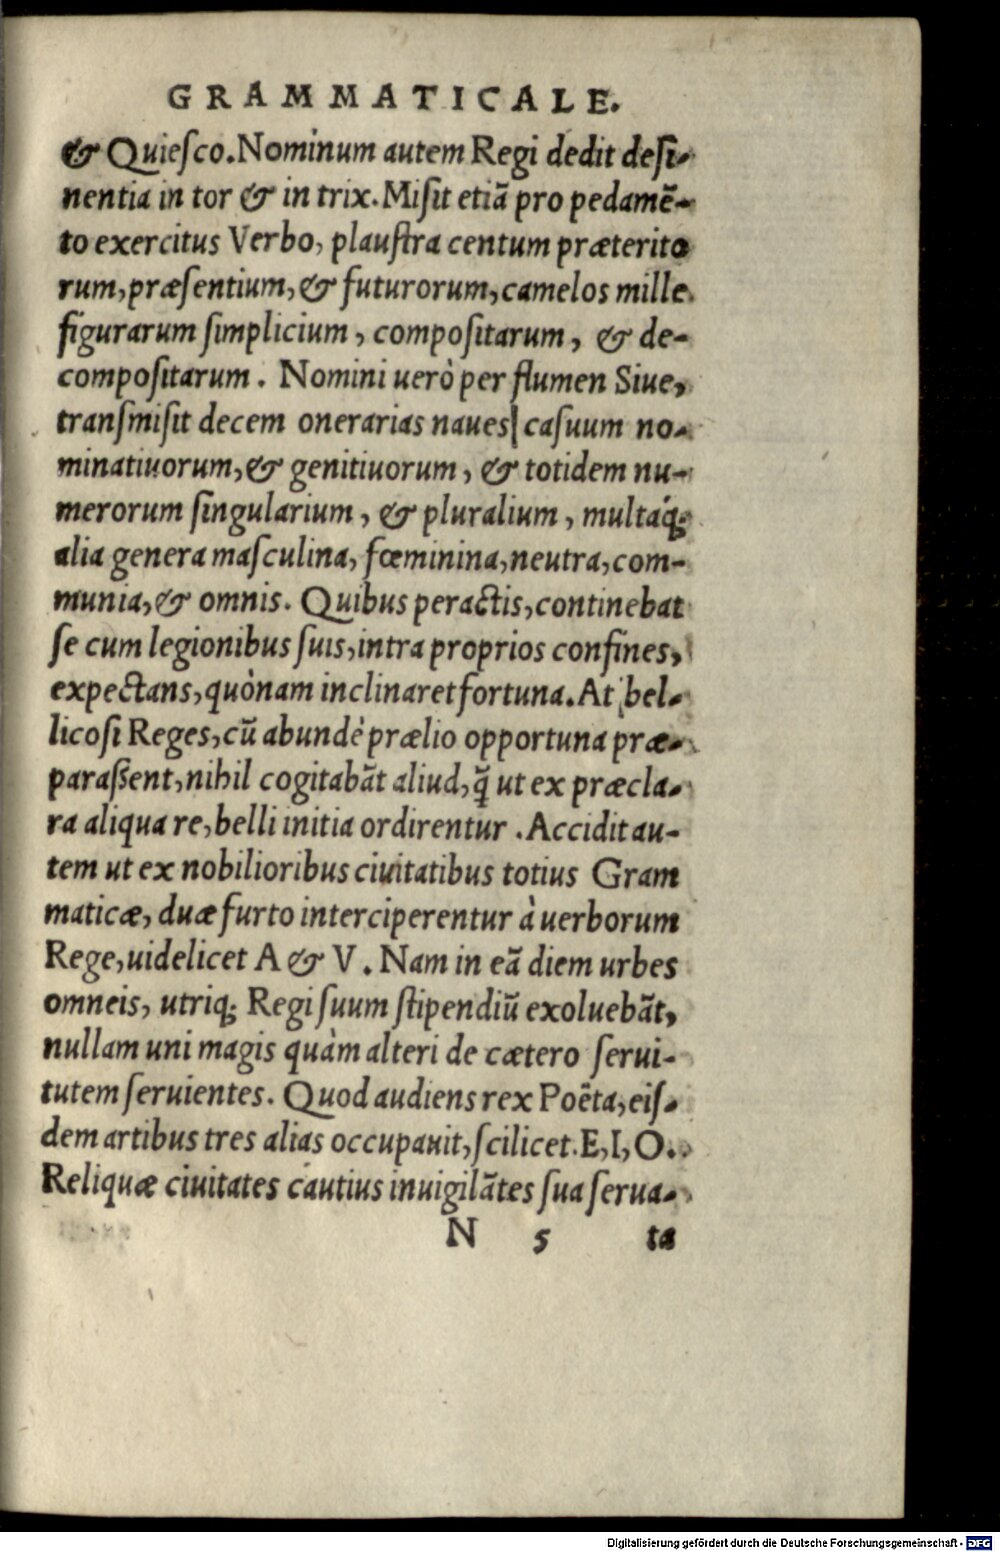 GRAMMATICALE.
& Quieſco. Nominum autem Regi dedit deſi-
nentia in tor & in trix. Miſit etiã pro pedamẽ-
to exercitus Verbo, plauſtra centum præterito
rum, præſentium, & futurorum, camelos mille
figurarum ſimplicium, compoſitarum, & de-
compoſitarum. Nomini uerò per flumen Siue,
tranſmiſit decem onerarias naues caſuum no-
minatiuorum, & genitiuorum, & totidem nu-
merorum ſingularium, & pluralium, multáq;
alia genera maſculina, fœminina, neutra, com-
munia, & omnis. Quibus peractis, continebat
ſe cum legionibus ſuis, intra proprios confines,
expectans, quònam inclinaret fortuna. At bel-
licoſi Reges, cũ abundè prælio opportuna præ-
paraßent, nihil cogitabãt aliud, q̃ ut ex præcla-
ra aliqua re, belli initia ordirentur. Accidit au-
tem ut ex nobilioribus ciuitatibus totius Gram
maticæ, duæ furto interciperentur à uerborum
Rege, uidelicet A & V. Nam in eã diem urbes
omneis, utriq; Regi ſuum ſtipendiũ exoluebãt,
nullam uni magis quàm alteri de cætero ſerui-
tutem ſeruientes. Quod audiens rex Poẽta, eiſ-
dem artibus tres alias occupauit, ſcilicet. E, I, O.
Reliquæ ciuitates cautius inuigilãtes ſua ſerua-
N 5 ta
Digitalisierung gefördert durch die Deutsche Forschungsgemeinschaft - DFG